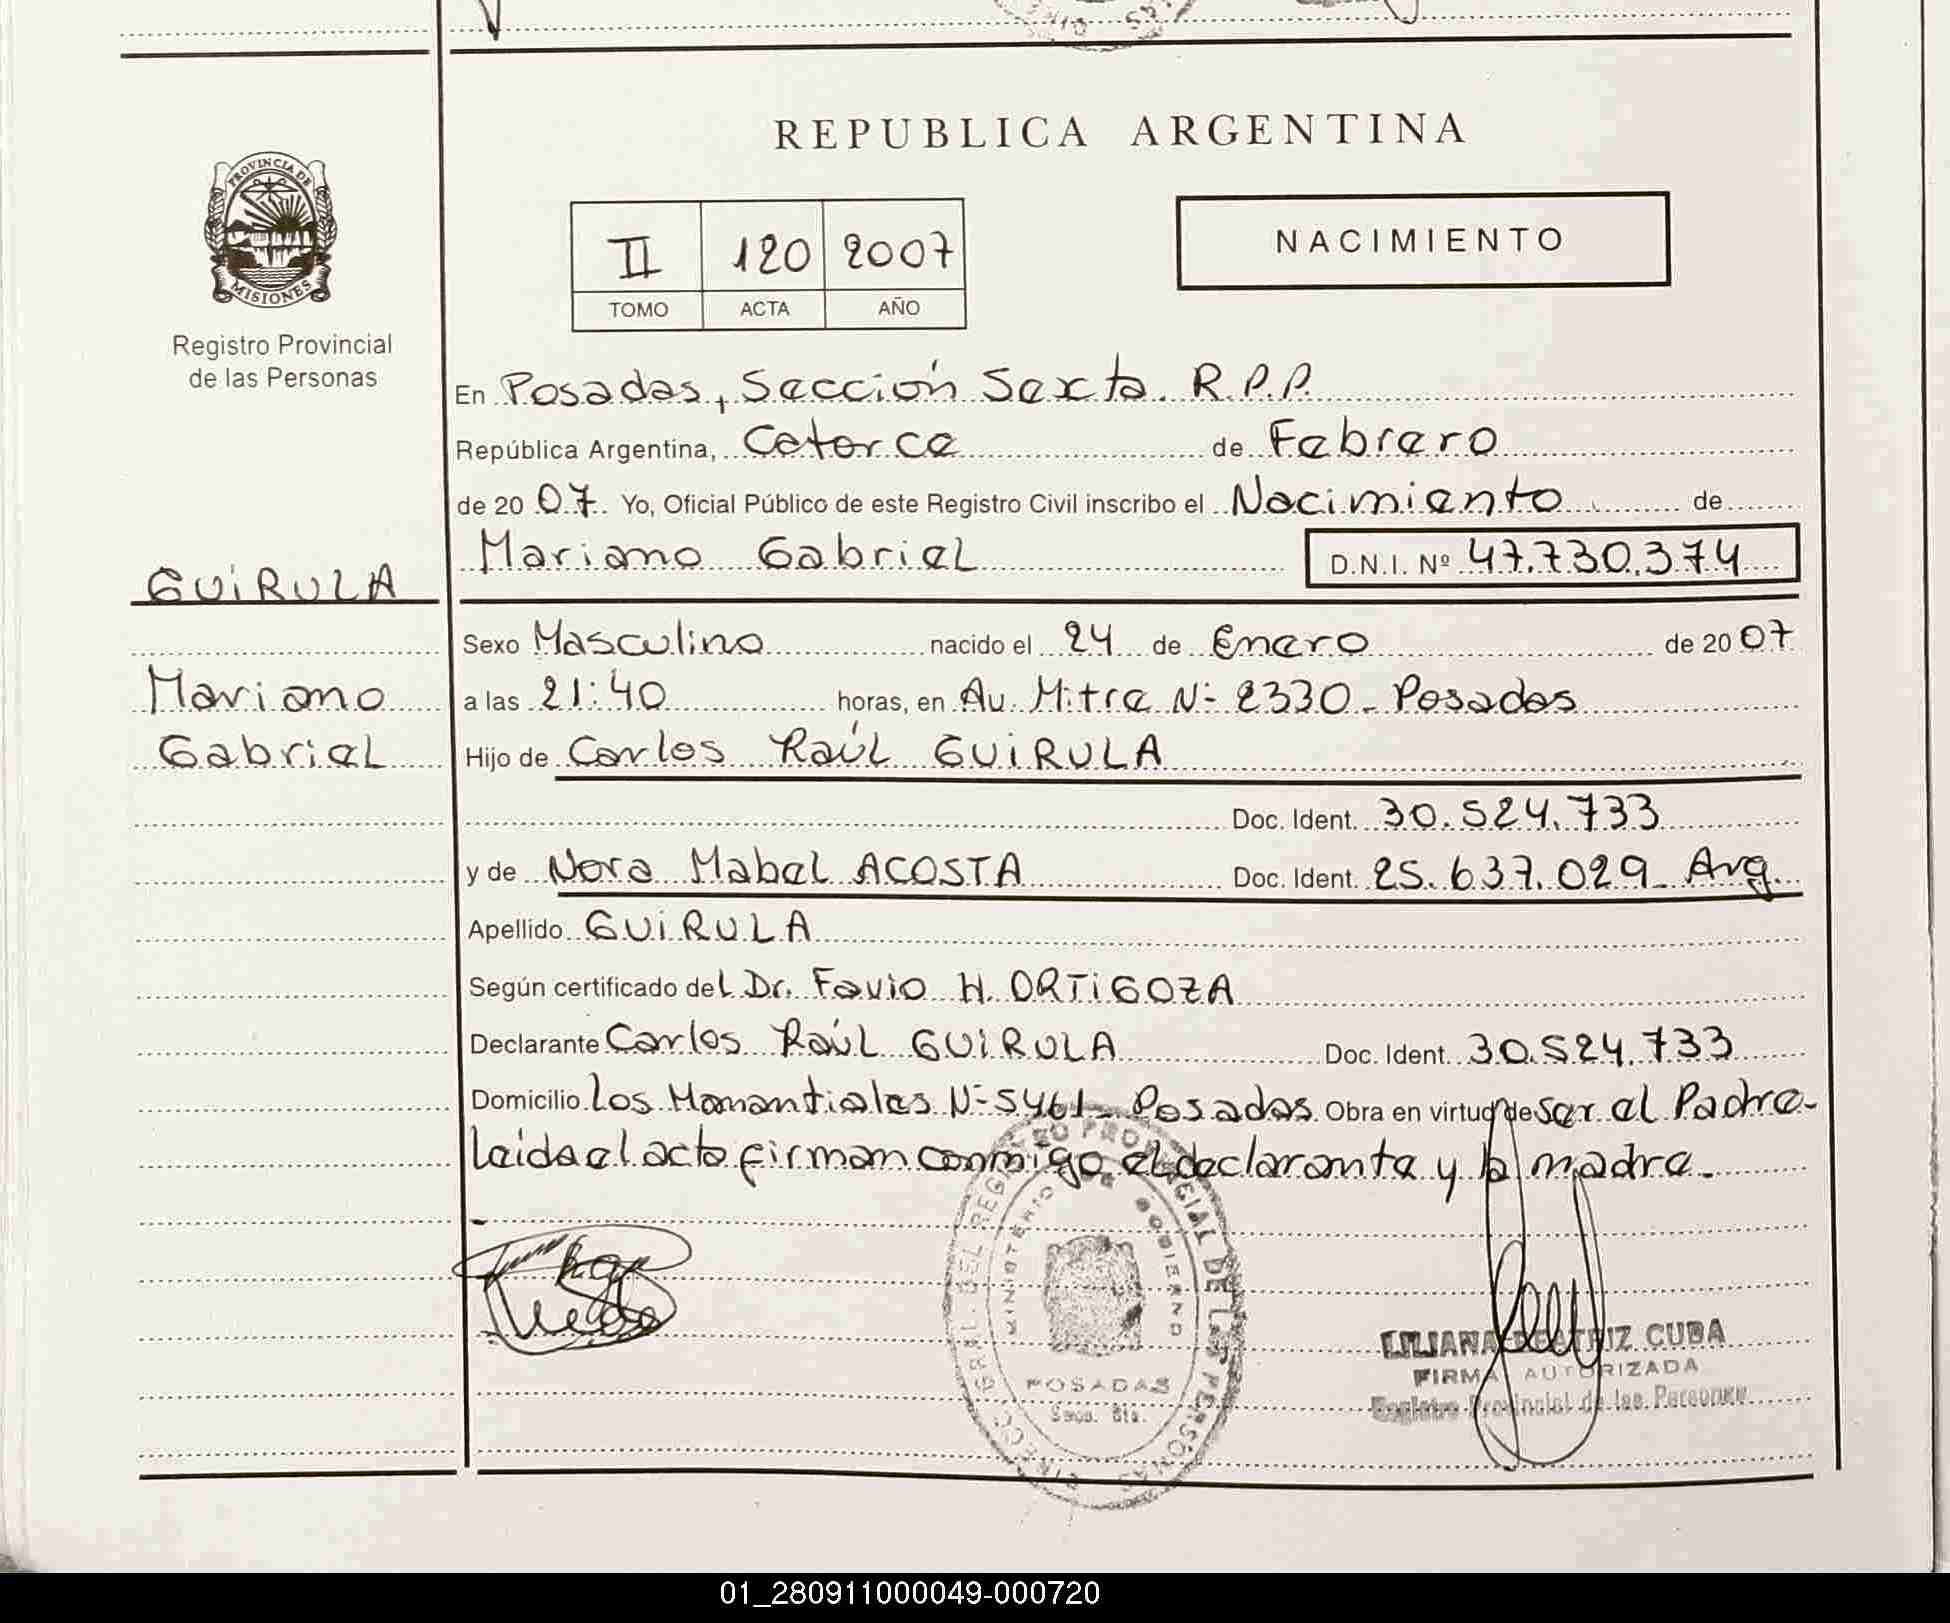 REPUBLICA ARGENTINA
PROVINCIA DE
MISIONES
Registro Provincial
de las Personas
II 120 2007
TOMO ACTA AÑO
NACIMIENTO
En Posadas, Sección Sexta. R.P.P.
República Argentina, Catorce de Febrero
de 20 07. Yo, Oficial Público de este Registro Civil inscribo el Nacimiento de
Mariano Gabriel D.N.I. Nº 47.730.374
GUiRULA
Mariano
Gabriel
Sexo Masculino nacido el 24 de Enero de 20 07
a las 21:40 horas, en Av. Mitre Nº 2330 - Posadas
Hijo de Carlos Raúl GUiRULA
Doc. Ident. 30.524.733
y de Nora Mabel ACOSTA Doc. Ident. 25.637.029 - Arg.
Apellido GUiRULA
Según certificado del Dr. Favio H. ORTiGOZA
Declarante Carlos Raúl GUiRULA Doc. Ident. 30.524.733
Domicilio Los Manantiales Nº 5461 - Posadas. Obra en virtud de ser el Padre -
leída el acta firman conmigo el declarante y la madre. -
MINISTERIO DE GOBIERNO
POSADAS
Secc. 6ta.
LILIANA BEATRIZ CUBA
FIRMA AUTORIZADA
Registro Provincial de las Personas
01_280911000049-000720